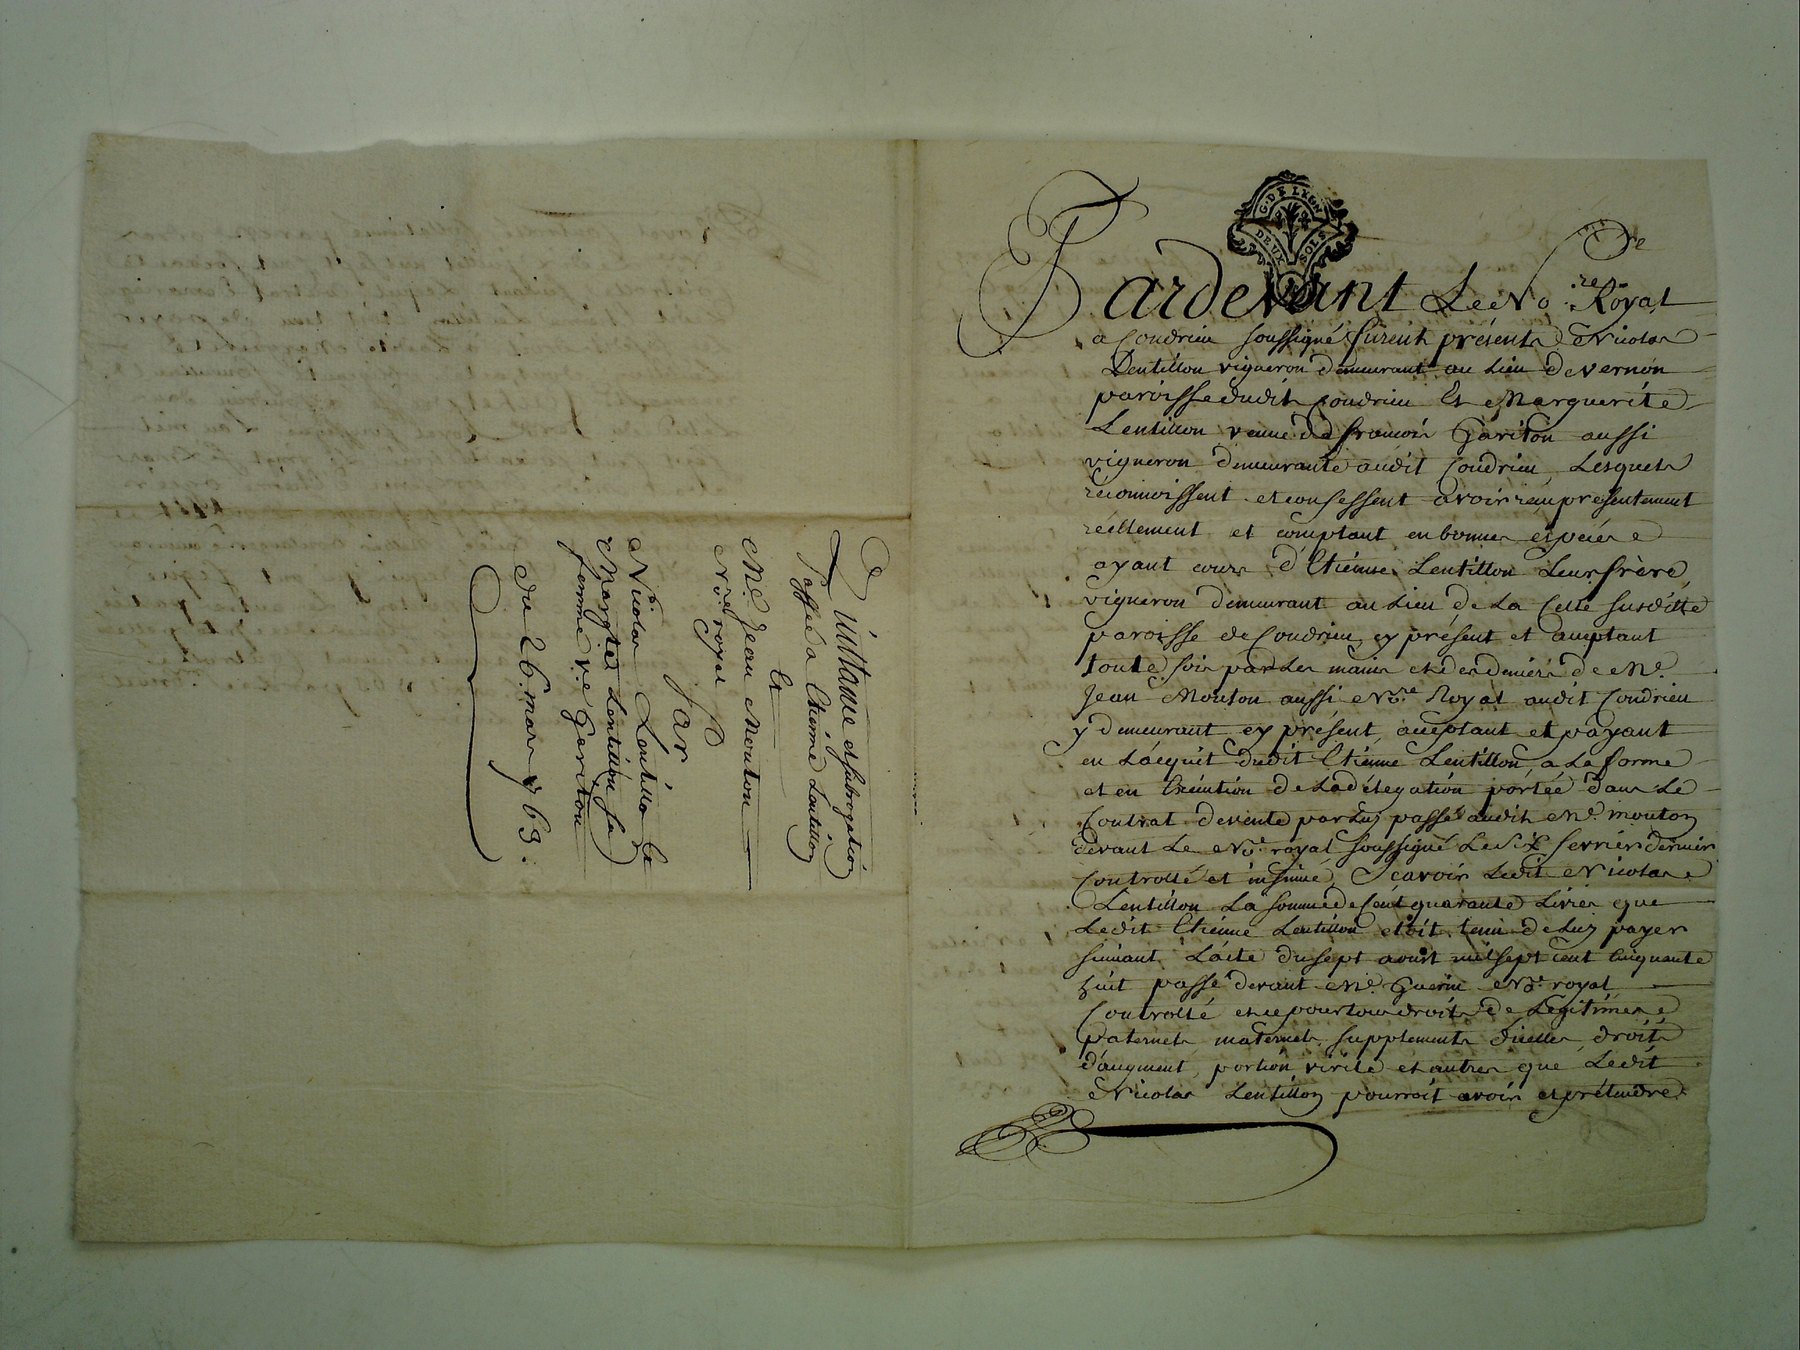 G. DE LYON
DEUX SOLS
Pardevant Le No.re Royal
a Condrieu soussigné furent présents Nicolas
Lentillon vigneron demeurant au Lieu de vernon
paroisse dudit Condrieu Et Marguerite
Lentillon veuve de francois Gariton aussi
vigneron demeurante audit Condrieu, Lesquels
réconnoissent et confessent avoir reçu présentement
réellement et comptant en bonnes espéces
ayant cours d'Etienne Lentillon Leur frère,
vigneron demeurant au Lieu de La Celle susditte
paroisse de Condrieu cy présent et acceptant
toute fois par Les mains et des deniers de Me.
Jean Mouton aussi No.re Royal audit Condrieu
y demeurant cy présent, acceptant et payant
en L'acquit dudit Etienne Lentillon, a La forme
et en Exécution de La délégation portée dans Le
Contrat de vente par Luy passé audit Me. mouton
devant Le No.re royal soussigné Le six fevrier dernier
Controllé et insinué, Scavoir Ledit Nicolas
Lentillon La somme de Cent quarante Livres que
Ledit Etienne Lentillon etoit tenu de Luy payer
suivant L'acte du sept avoust mil sept cent Cinquante
huit passé devant Me. Guerin No.re royal
Controllé et ce pour tous droits de Légitimes
paternels maternels, supplements d'icelles, droits
d'augment, portion virile et autres que Ledit
Nicolas Lentillon pourroit avoir et prétendre
Quittance et subrogation
Passées a Etienne Lentillon
Et
Me. Jean Mouton
No.re royal
Par
Nicolas Lentillon Et
Margte Lentillon sa
femme ve Gariton
du 26 mars 1763.